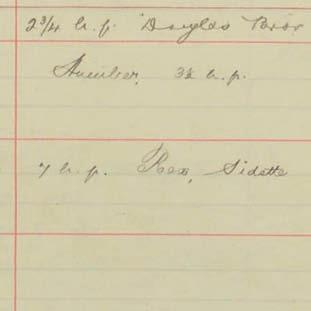 2¾ h.p. Douglas
Humber, 3½ h.p.
7 h.p. Rex, Sidette